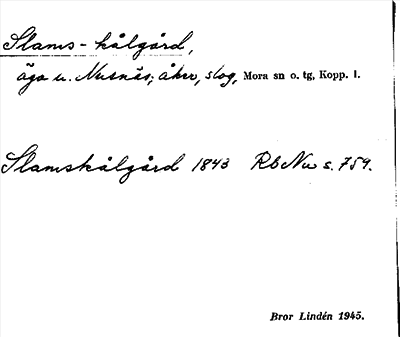 Slams-kålgård,
äga u. Nusnäs; åker, slog, Mora sn o. tg, Kopp. l.
Slamskålgård 1843 Rb Nu s. 759.
Bror Lindén 1945.